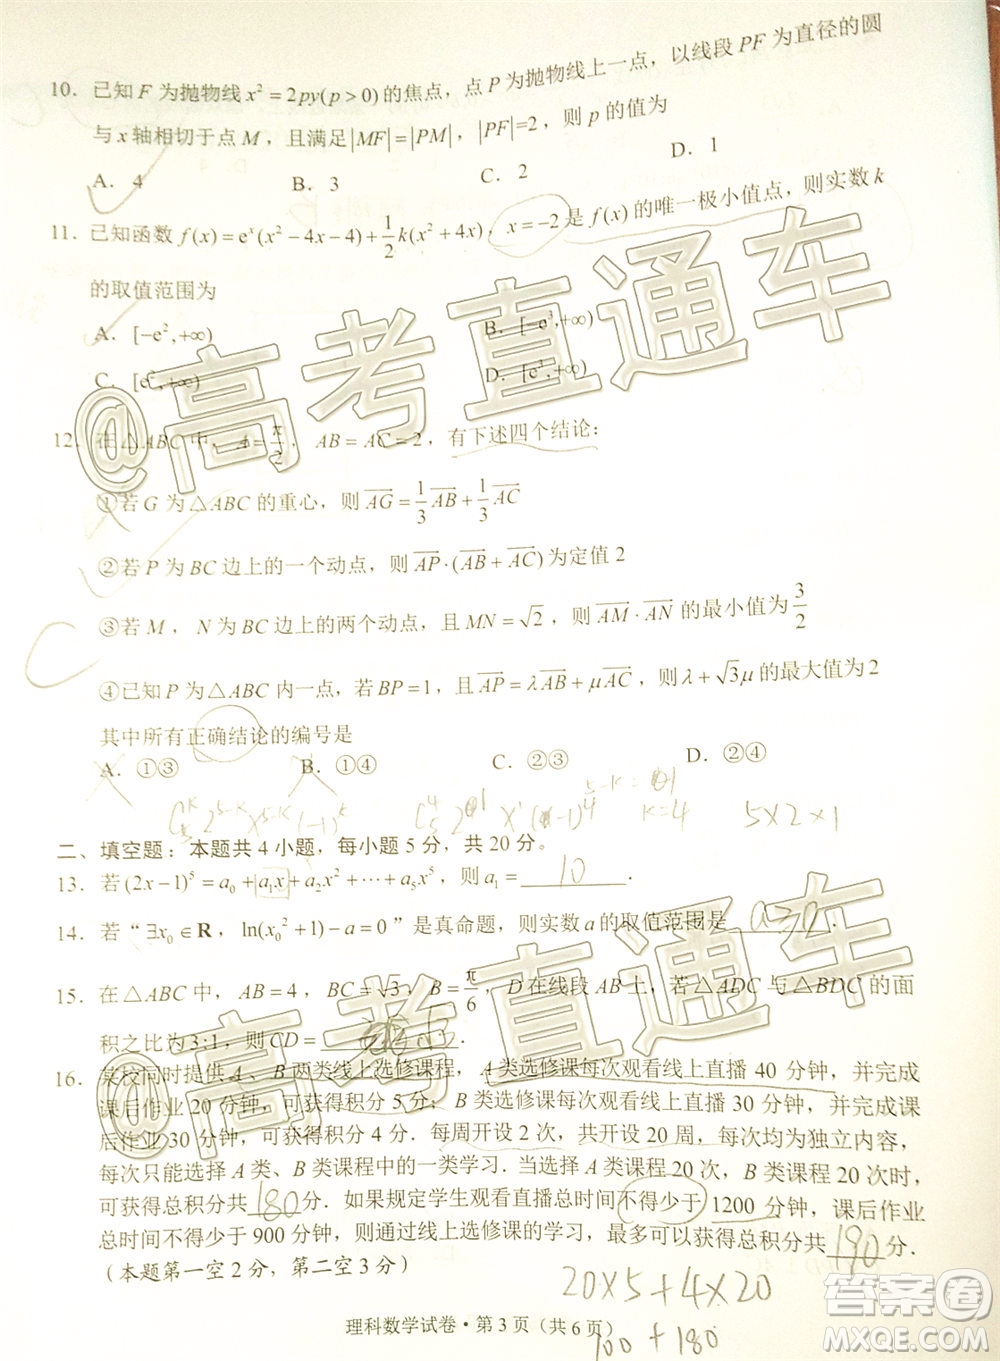 10. 已知 F 为抛物线 x²=2py(p>0) 的焦点，点 P 为抛物线上一点，以线段 PF 为直径的圆
与 x 轴相切于点 M，且满足|MF|=|PM|，|PF|=2，则 p 的值为
A. 4 B. 3 C. 2 D. 1
11. 已知函数 f(x)=eˣ(x²-4x-4)+1/2k(x²+4x)，x=-2 是 f(x) 的唯一极小值点，则实数 k
的取值范围为
A. [-e²,+∞) B. [-e³,+∞)
C. [e²,+∞) D. [e³,+∞)
12. 在△ABC 中，A=π/2，AB=AC=2，有下述四个结论：
①若 G 为△ABC 的重心，则 AG=1/3AB+1/3AC
②若 P 为 BC 边上的一个动点，则 AP·(AB+AC)为定值 2
③若 M，N 为 BC 边上的两个动点，且 MN=√2，则 AM·AN 的最小值为 3/2
④已知 P 为△ABC 内一点，若 BP=1，且 AP=λAB+μAC，则 λ+√3μ 的最大值为 2
其中所有正确结论的编号是
A. ①③ B. ①④ C. ②③ D. ②④
5×2×1
二、填空题：本题共 4 小题，每小题 5 分，共 20 分。
13. 若(2x-1)⁵=a₀+a₁x+a₂x²+⋯+a₅x⁵，则 a₁= 10 .
14. 若“∃x₀∈R，ln(x₀²+1)-a=0”是真命题，则实数 a 的取值范围是 a≥0 .
15. 在△ABC 中，AB=4，BC=√3，B=π/6，D 在线段 AB 上，若△ADC 与△BDC 的面
积之比为 3:1，则 CD=
16. 某校同时提供 A、B 两类线上选修课程，A 类选修课每次观看线上直播 40 分钟，并完成
课后作业 20 分钟，可获得积分 5 分；B 类选修课每次观看线上直播 30 分钟，并完成课
后作业 30 分钟，可获得积分 4 分．每周开设 2 次，共开设 20 周，每次均为独立内容，
每次只能选择 A 类、B 类课程中的一类学习．当选择 A 类课程 20 次，B 类课程 20 次时，
可获得总积分共 180 分．如果规定学生观看直播总时间不得少于 1200 分钟，课后作业
总时间不得少于 900 分钟，则通过线上选修课的学习，最多可以获得总积分共 190 分．
（本题第一空 2 分，第二空 3 分）
20×5+4×20
理科数学试卷·第 3 页（共 6 页）
100+180
@高考直通车
@高考直通车
答案圈
MXQE.COM